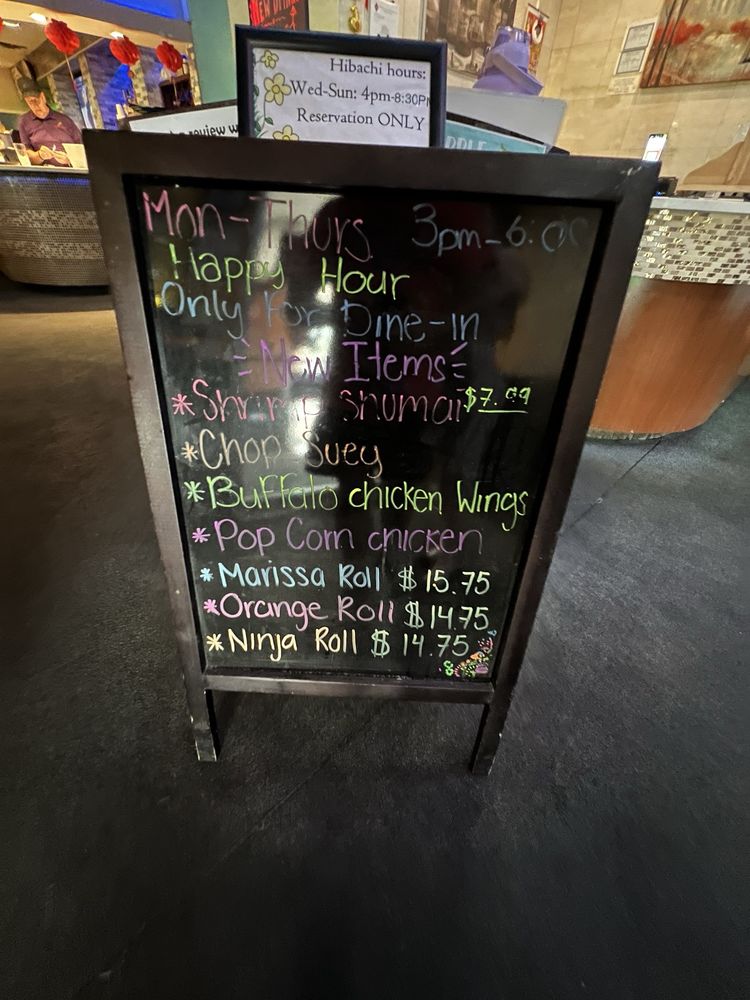 Hibachi hours:
Wed-Sun: 4pm-8:30PM
Reservation ONLY
review
Mon-Thurs 3pm-6:00
Happy Hour
Only For Dine-in
New Items
*Shrimp Shumai $7.99
*Chop Suey
*Buffalo chicken Wings
*Pop Corn chicken
*Marissa Roll $15.75
*Orange Roll $14.75
*Ninja Roll $14.75